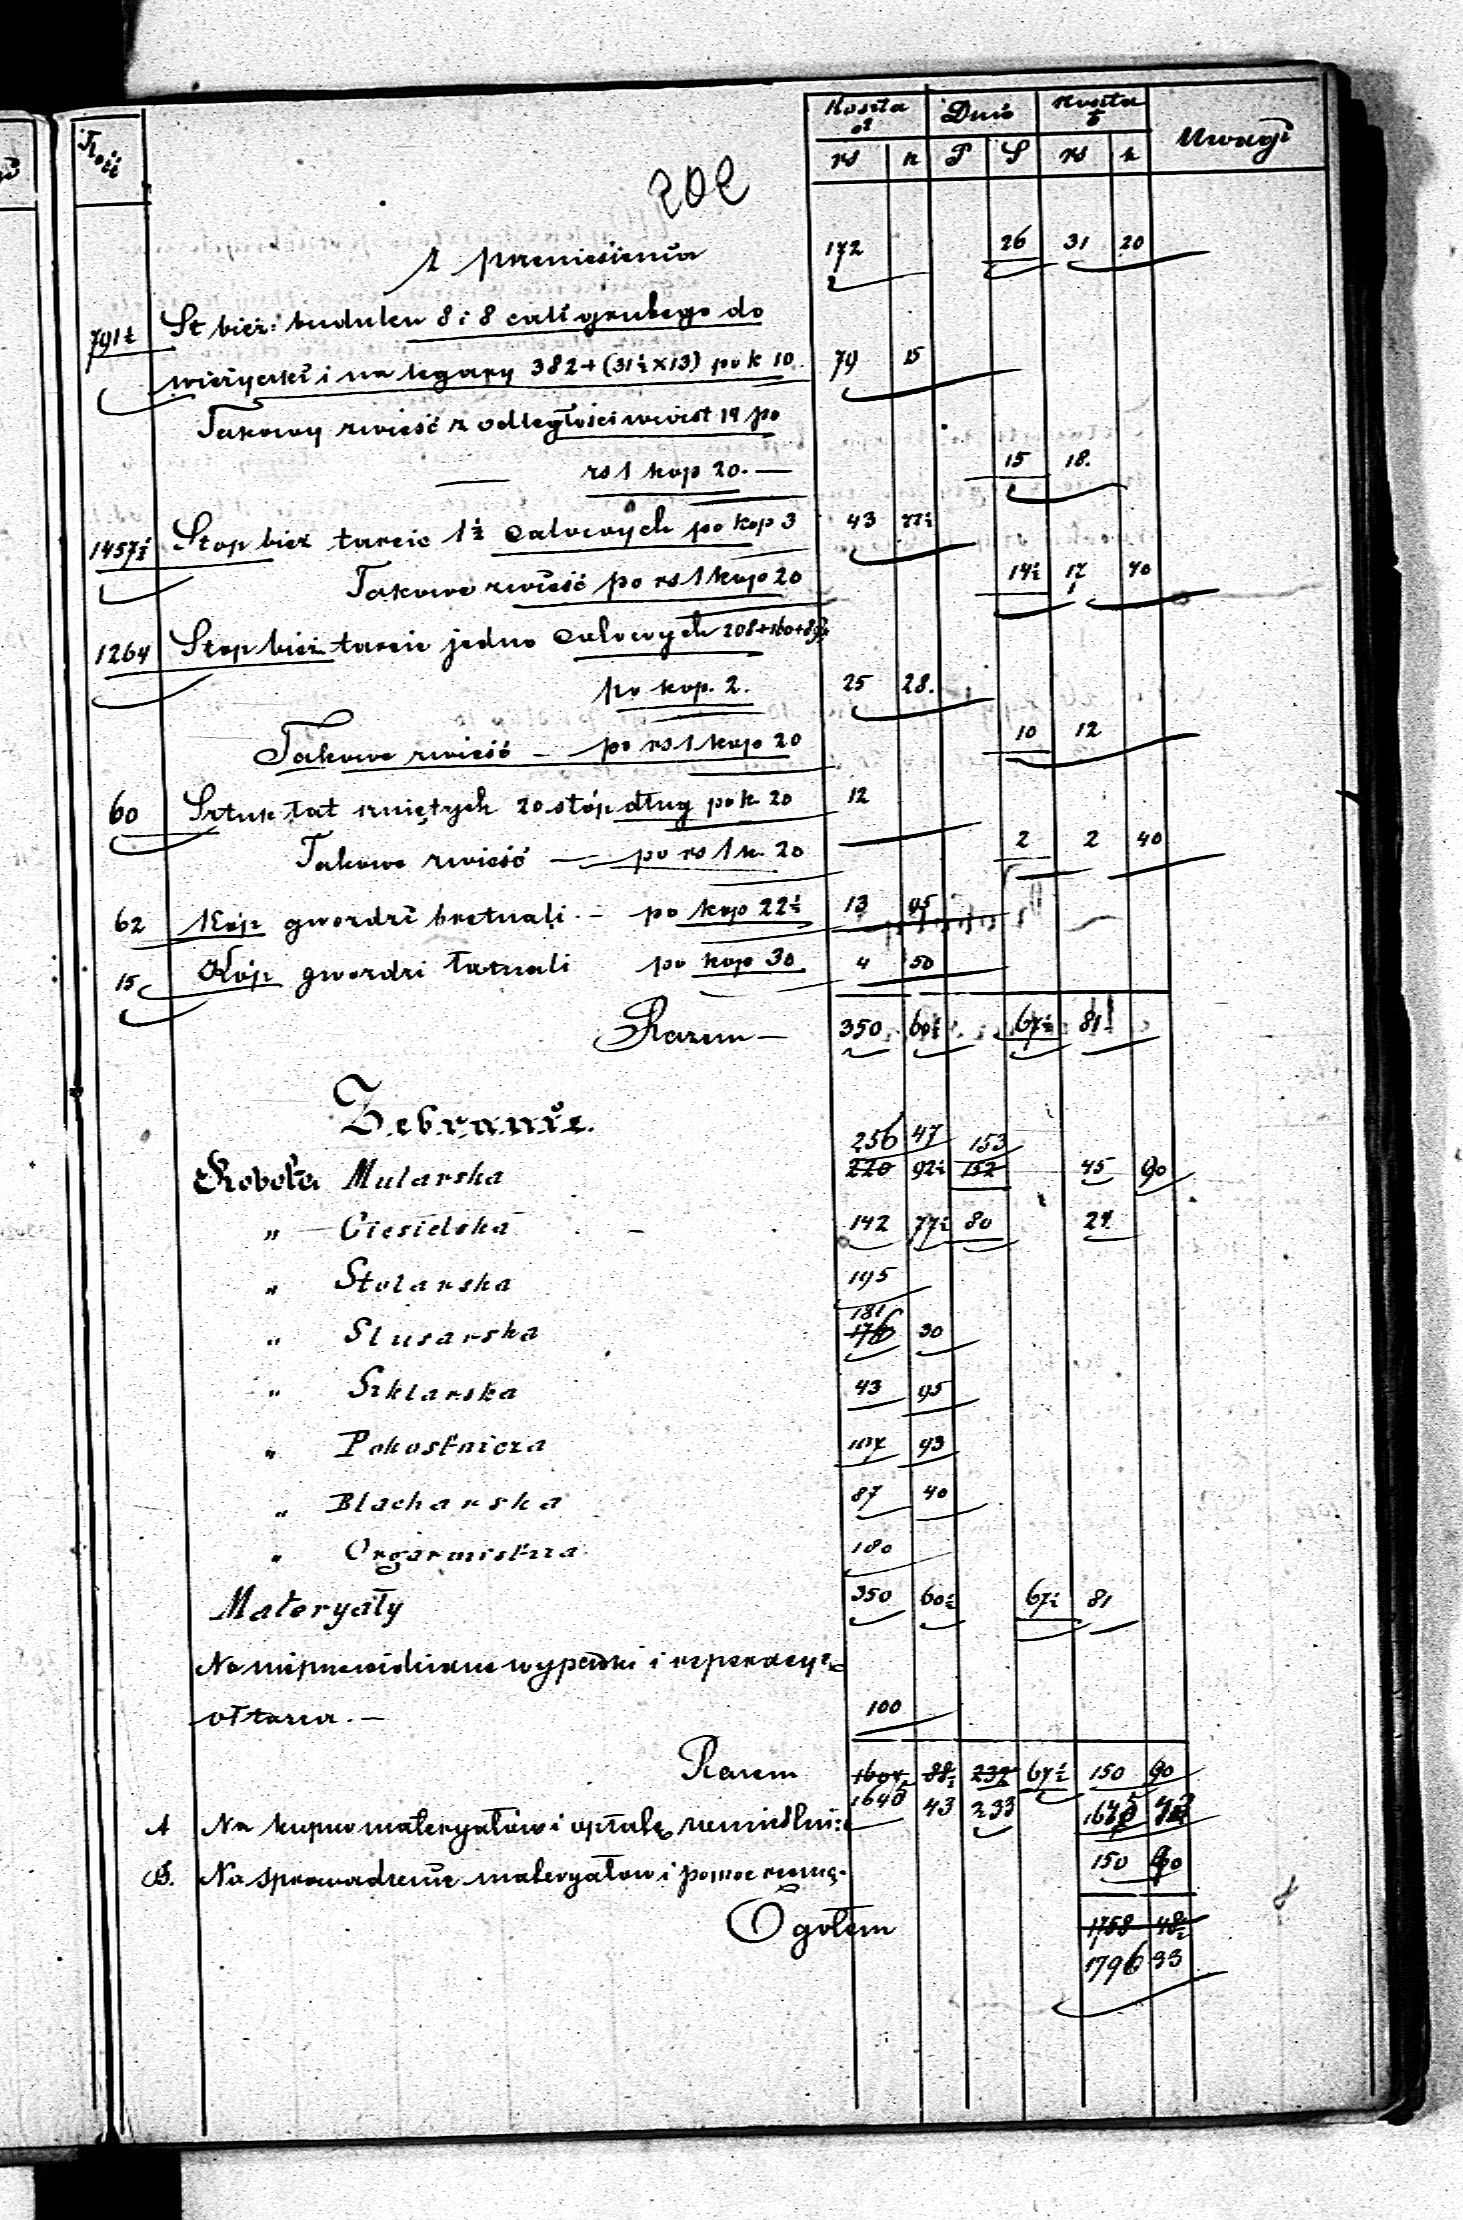 Ilość Koszta a Dnie Koszta b Uwagi
rs k P S rs k
202
z przeniesienia 172 26 31 20
791½ St bież: budulcu 8 i 8 cali grubego do
wieżyczki i na legary 382+(31½×13) po k 10 79 15
Takowy zwieść z odległości wiorst 14 po
rs 1 kop 20.— 15 18.
1457½ Stop bież tarcic 1½ calowych po kop 3 43 72½
Takowe zwieść po rs 1 kop 20 14½ 17 40
1264 Stop bież tarcic jedno calowych 208+160+896
po kop. 2. 25 28.
Takowe zwieść — po rs 1 kop 20 10 12
60 Sztuk łat rzniętych 20 stóp dług po k 20 12
Takowe zwieść — po rs 1 k. 20 2 2 40
62 Kóp gwoździ bretnali — po kop 22½ 13 95
15 Kóp gwoździ łatnali po kop 30 4 50
Razem — 350 60½ 67½ 81
Zebranie.
256 47 153
Robota Mularska 220 92½ 152 45 90
„ Ciesielska 142 77½ 80 24
„ Stolarska 195
181
„ Slusarska 176 30
„ Szklarska 43 95
„ Pokostnicza 107 93
„ Blacharska 87 40
„ Organmistrza 180
Materyały 350 60½ 67½ 81
Na nieprzewidziane wypadki i reperacyą
ołtarza.— 100
Razem 1604 88½ 232 67½ 150 90
1645 43 233
A Na kupno materyałów i opłatę rzemieślni: 1645 43
B. Na sprowadzenie materyałów i pomoc ręczną. 150 90
Ogółem 1758 48½
1796 33